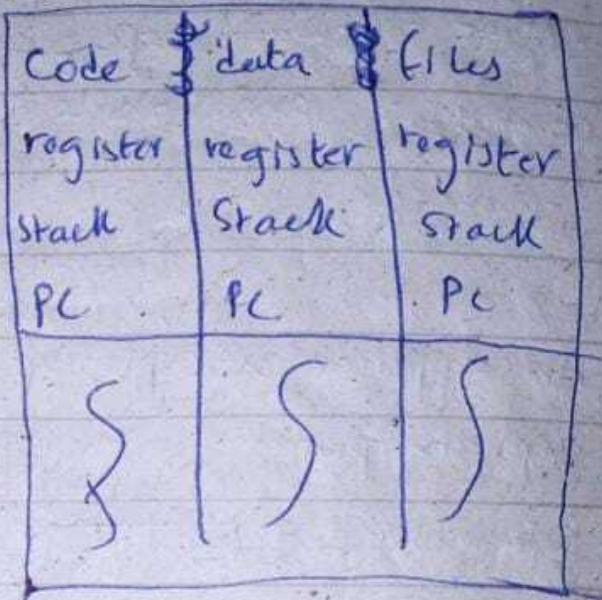 Code data files
register register register
stack Stack stack
PC PC PC